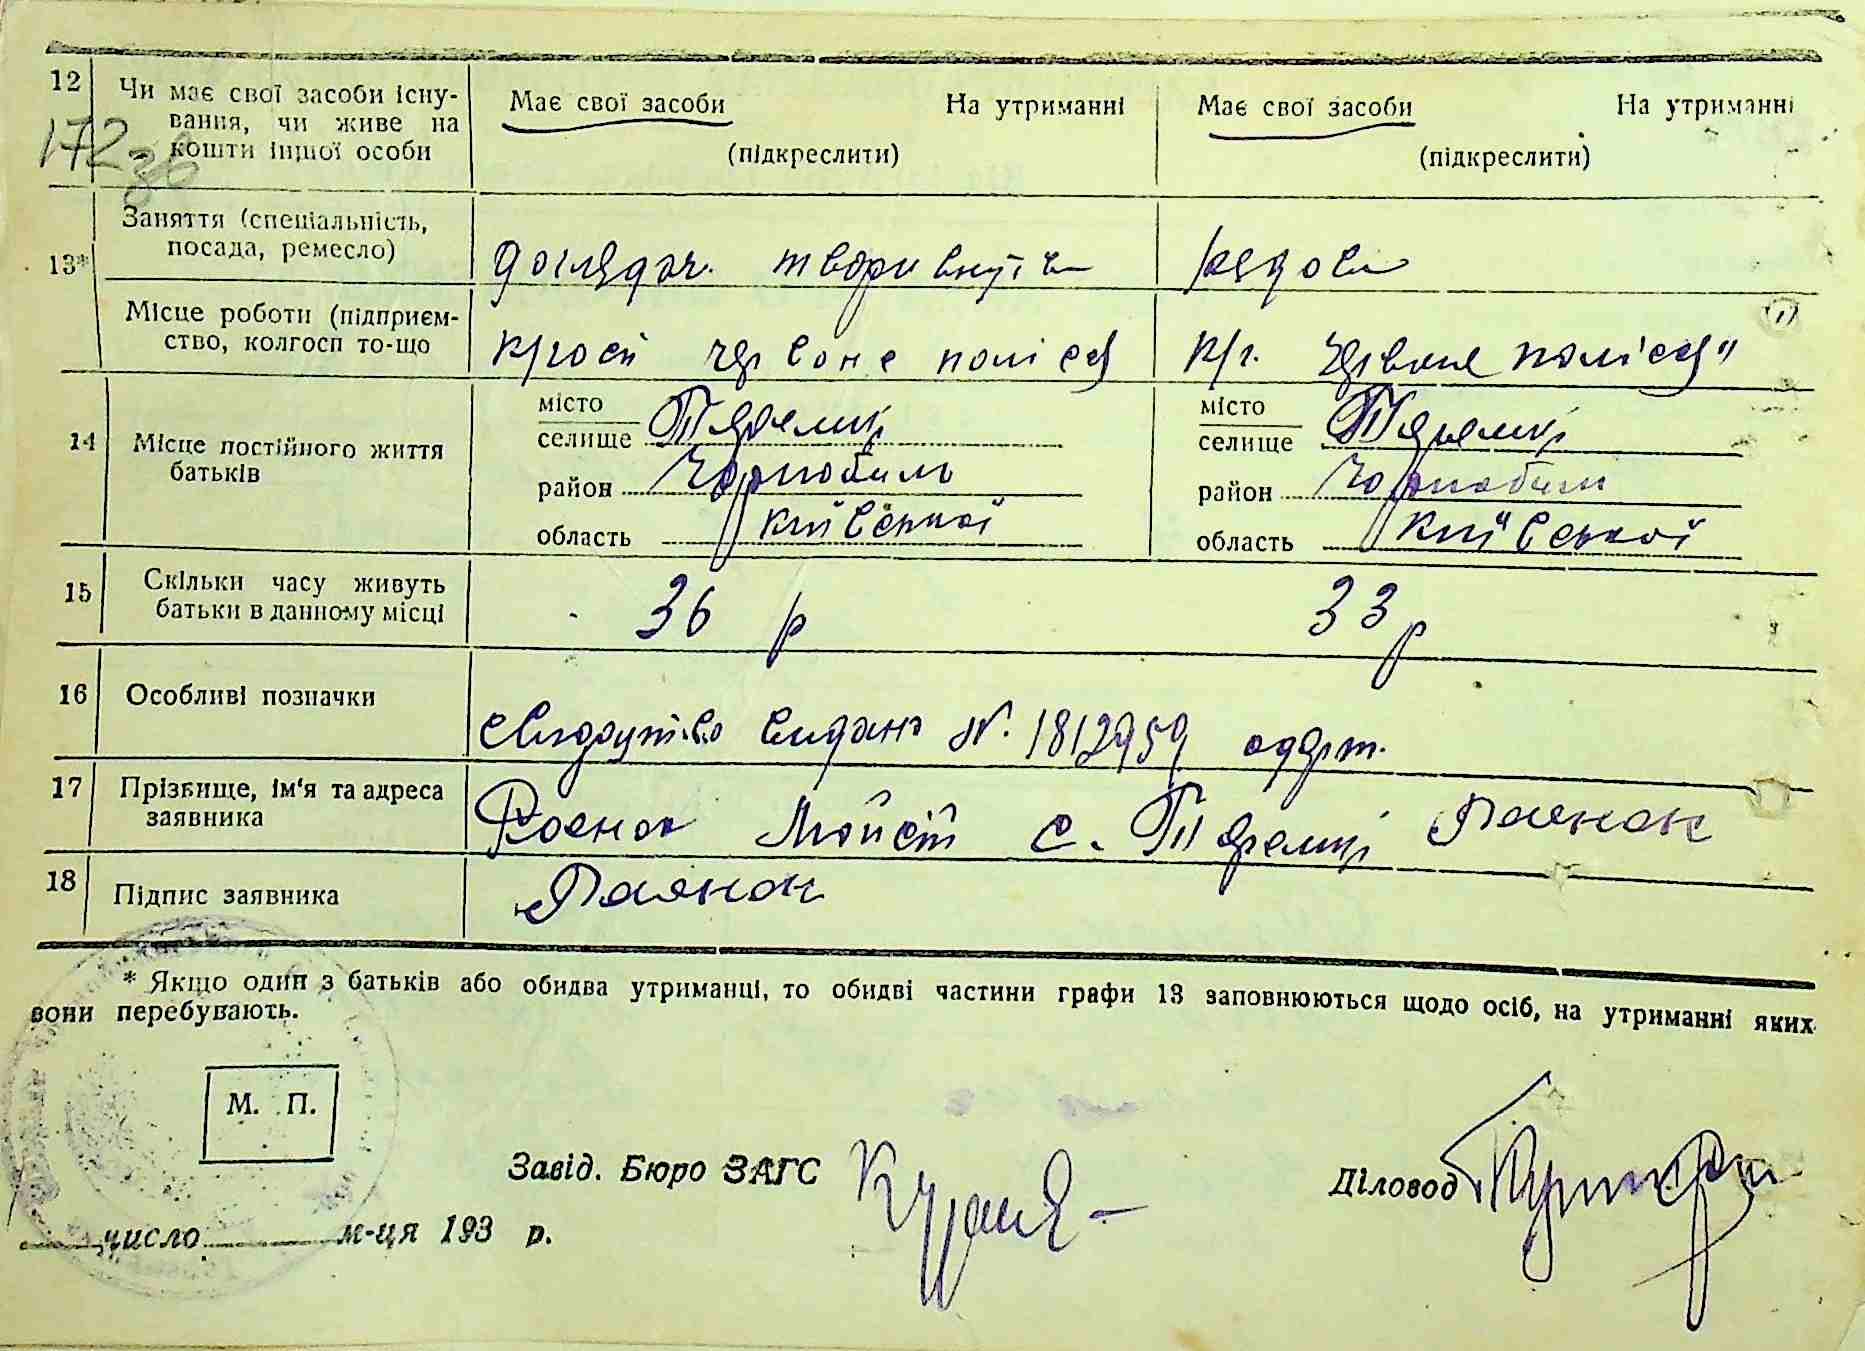 12 Чи має свої засоби існу-
вання, чи живе на
кошти іншої особи
172 зв
Має свої засоби На утриманні
(підкреслити)
Має свої засоби На утриманні
(підкреслити)
13*
Заняття (спеціальність,
посада, ремесло)
догледач. твори
рядова
Місце роботи (підприєм-
ство, колгосп то-що
к/госп червоне полісся
к/г. червоне полісся"
14 Місце постійного життя
батьків
місто
селище Теремці
район Чорнобиль
область київської
місто
селище Теремці
район Чорнобиль
область київської
15 Скільки часу живуть
батьки в данному місці
36 р
33 р
16 Особливі позначки
свидоцтво видано №. 1812959
17 Прізвище, ім'я та адреса
заявника
Мойсій с. Теремці
18 Підпис заявника
* Якщо один з батьків або обидва утриманці, то обидві частини графи 13 заповнюються щодо осіб, на утриманні яких
вони перебувають.
М. П.
Завід. Бюро ЗАГС
Діловод
число м-ця 193 р.